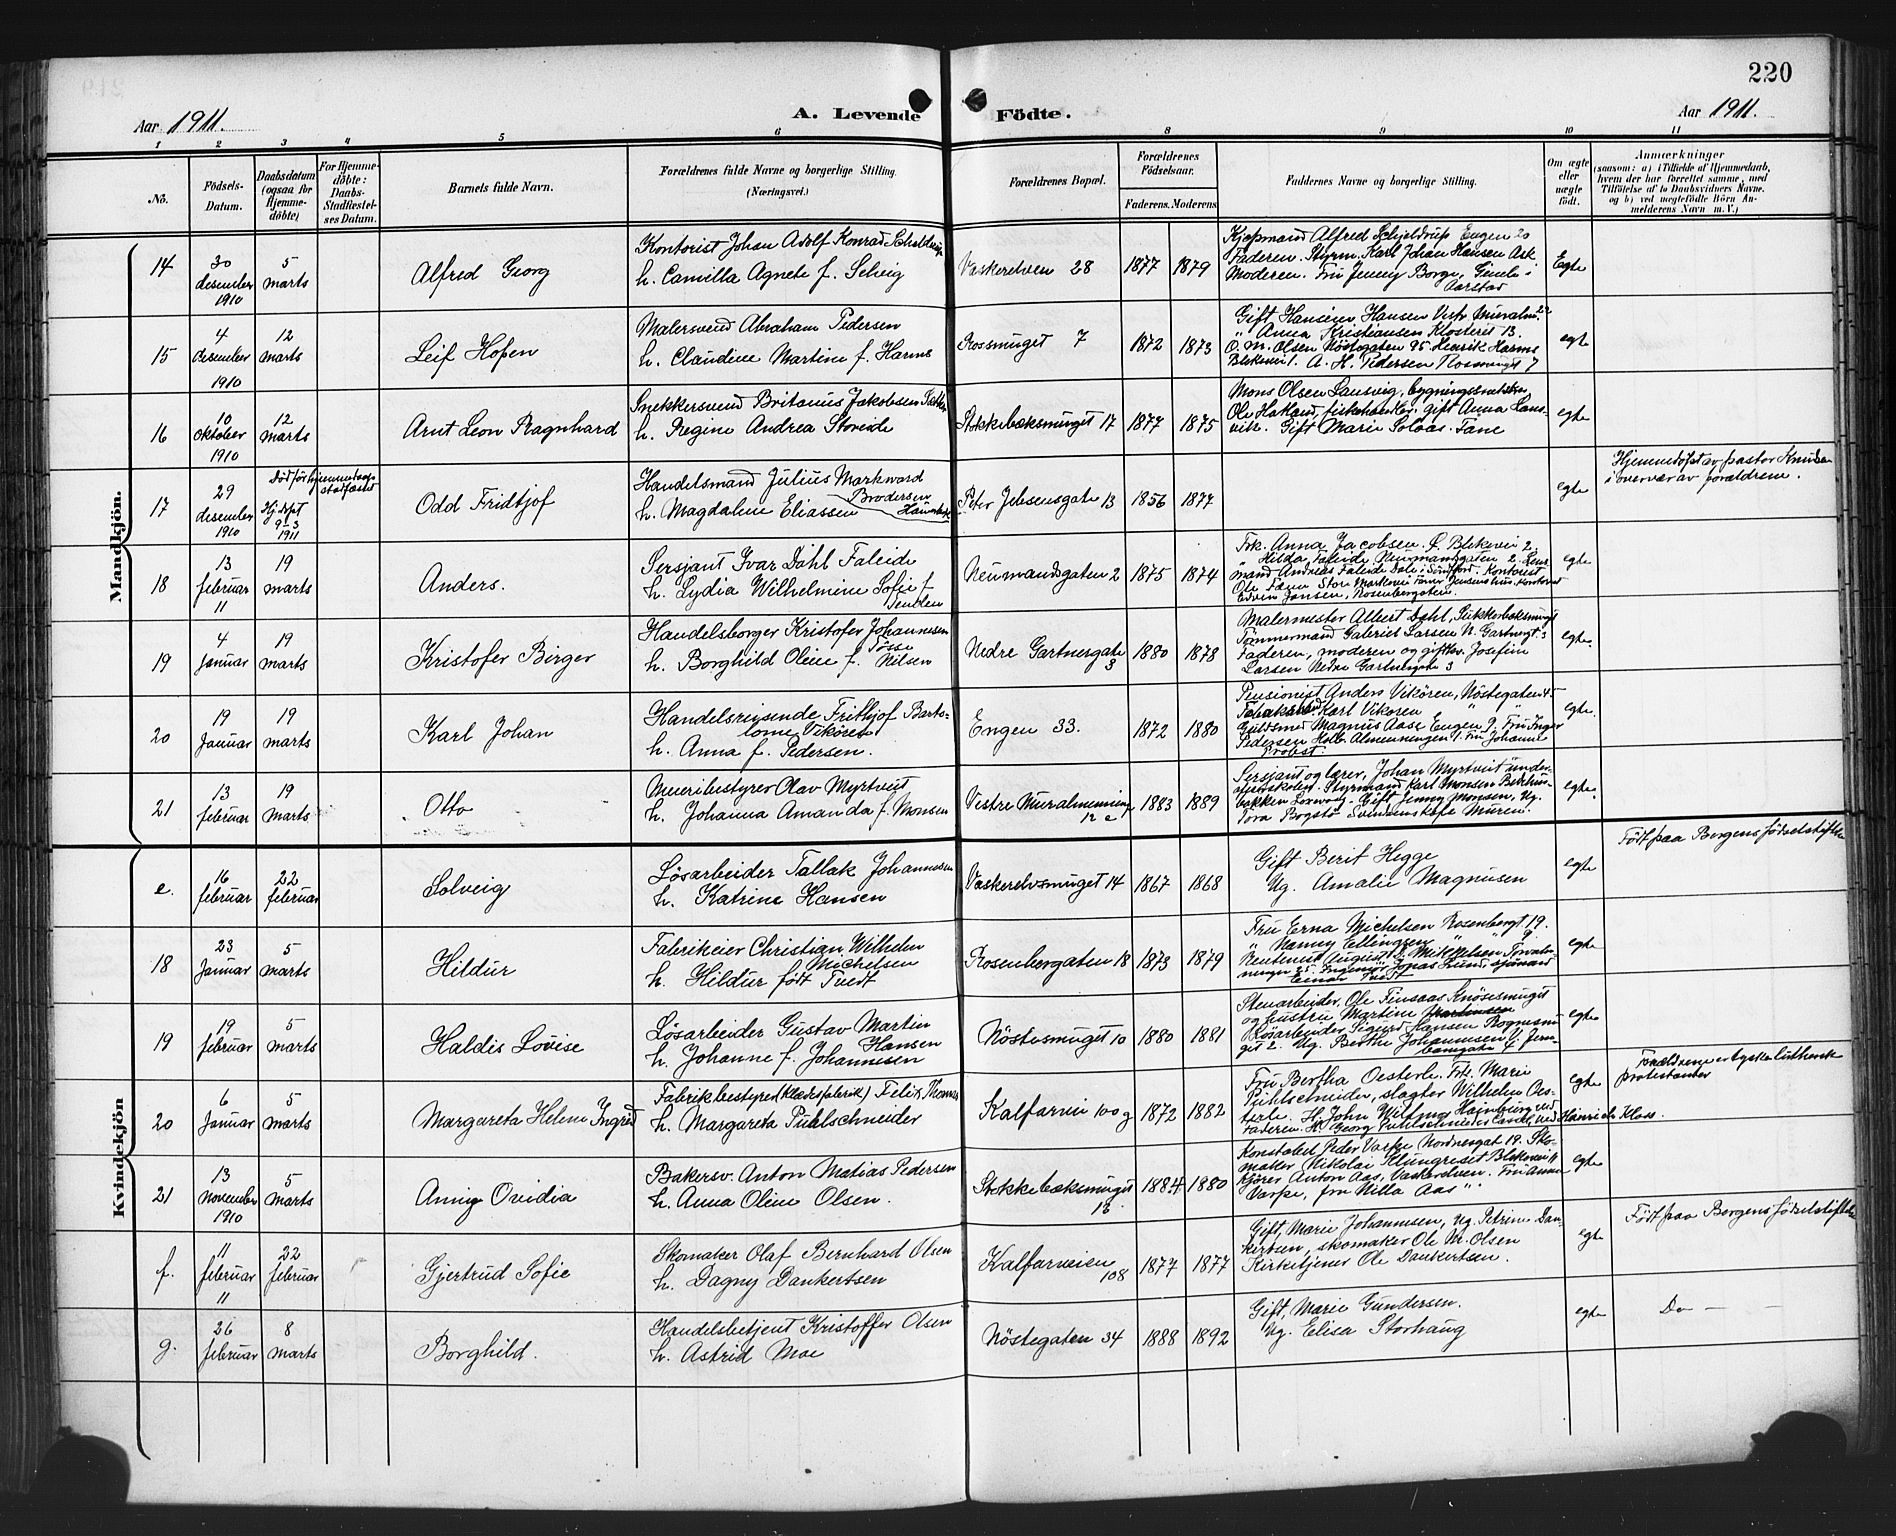 220
Aar 1911.
A. Levende Födte.
Aar 1911.
1 2 3 4 5 6 8 9 10 11
No.
Födsels-Datum.
Daabsdatum (ogsaa for Hjemme-döbte)
For Hjemme-döbte: Daabs-Stadfæstelses Datum.
Barnets fulde Navn.
Forældrenes fulde Navne og borgerlige Stilling. (Næringsvei.)
Forældrenes Bopæl.
Forældrenes Födselsaar.
Faderens. Moderens.
Faddernes Navne og borgerlige Stilling.
Om ægte eller uægte födt.
Anmærkninger
(saasom: a) i Tilfælde af Hjemmedaab, hvem der har forrettet samme, med Tilföielse af to Daabsvidners Navne. og b) ved uægtefödte Börn Anmelderens Navn m. V.)
Mandkjön.
14
30 desember 1910
5 marts
Alfred Georg
Kontorist Johan Adolf Konrad
h. Camilla Agnete f. Selvig
Vaskerelven 28
1877 1879
Kjøpmand Alfred Schjeldrup Engen 20
Faderen. Styrm. Karl Johan Hansen Ask
Moderen. Fru Jenny Borge,
Aarstad
Egte
15
4 desember 1910
12 marts
Leif Hofen
Malersvend Abraham Pedersen
h. Claudine Martine f. Harms
Rossmuget 7
1872 1873
Gift Hansine Hansen Vestr Muralm. 22
" Anna Kristiansen Klosteret 13.
O. M. Olsen Nöstegaten 95. Henrik Harms
Blekevei 1. A. H. Pedersen Rosmuget 7
egte
16
10 oktober 1910
12 marts
Arnt Leon Ragnhard
Snekkersvend Britanus Jakobsen
h. Regine Andrea Storeide
Stokkebæksmuget 17
1877 1875
Mons Olsen Lansvig, bygningssnekker
Ole Hakland, fiskehandler, gift Anna Lans-
vik. Gift Marie Solaas. Fane
egte
17
29 desember 1910
Død før hjemmedaaps stadfæstet
Hj.døpt 9-3 1911
Odd Fridtjof
Handelsmand Julius Markward
Brodersen
h. Magdalene Eliassen
Peter Jebsensgate 13
1856 1877
egte
Hjemmedøpt av pastor Knudsen
i overvær av forældrene.
18
13 februar 11
19 marts
Anders.
Sersjant Ivar Dahl Faleide
h. Lydia Wilhelmine Sofie f
Neumandsgaten 2
1875 1874
Frk. Anna Jacobsen. L. Blekevei 2
" Hilda Faleide Neumandsgaten 2. Lens-
mand Andreas Faleide Dale i Sundfjord. Kontorist
Edvin Jansen, Rosenbergaten.
egte
19
4 Januar
19 marts
Kristofer Birger
Handelsborger Kristofer Johannesen
Tösse
h. Borghild Oline f. Nilsen
Nedre Gartnergate 3
1880 1878
Malermester Albert Dahl, Sukkerbaksmuget
Tømmermand Gabriel Larsen N. Gartnergt. 3
Faderen, moderen og Josefine
Larsen Nedre Gartnergate 3
egte.
20
19 Januar
19 marts
Karl Johan
Handelsreisende Frithjof Barto-
lome Vikören
h. Anna f. Pedersen.
Engen 33.
1872 1880
Pensionist Anders Vikören, Nöstegaten 45
Karl Vikoren " "
Guldsmed Magnus Aase Engen 9. Fru Inger
Pedersen Holb. Almenningen 1. Fru Johanne
Probst
egte.
21
13 februar
19 marts
Otto
Meieribestyrer Olav Myrtveit
h. Johanna Amanda f. Monsen
Vestre Muralmenning 12 e
1883 1889
Sersjant og lærer, Johan Myrtveit under-
Styrmand Karl Monsen
bakken Laxevaag. Gift Jenny Monsen, Ug.
Tora Bogstø
egte.
Kvindekjön
e.
16 februar
22 februar
Solveig
Løsarbeider Tallak Johannesen
h. Katrine Hansen
Vaskerelvsmuget 14
1867 1868
Gift Berit Hegge
Ug. Amalie Magnusen
egte
Født paa Bergens fødselstiftelse
18
23 Januar
5 marts
Hildur
Fabrikeier Christian Wilhelm
Michelsen
h. Hildur født Tvedt
Rosenbergaten 18
1873 1879
Fru Erna Michelsen Rosenbergt 19.
" Nanny Ellingsen " 9
August Mikkelsen
Ingeniör Jonas Lund,
Einar Tvedt
egte
19
19 februar
5 marts
Haldis Lovise
Løsarbeider Gustav Martin
Hansen
h. Johanne f. Johannesen
Nöstesmuget 10
1880 1881
Stenarbeider, Ole Knösesmuget
og hustru Martine
Løsarbeider Sigurd Hansen
get 2. Ug. Berthe Johannesen
egte
20
6 Januar
5 marts
Margareta Helene Ingrid
Fabrikbestyrer (klædesfabrik) Felix Thomas
h. Margareta Puhlschneider
Kalfarvei 100 g
1872 1882
Fru Bertha Oesterle. Frk. Marie
Puhlschneider, slagter Wilhelm Oes-
terle. Hr. John Wittmer Hamburg ved
Faderen. Hr. Georg Puhlschneider ved Heinrich Kloss.
egte
Forældrene er tyske lutherske
protestanter
21
13 november 1910
5 marts
Anny Ovidia
Bakersv. Anton Matias Pedersen
h. Anna Oline Olsen.
Stokkebæksmuget
1884 1880
Konstabel Peder Varpe Nordnesgat 19. Sko-
maker Nikolai Klungreset Blekevei 11
Kjører Anton Aas, Vaskerelven. Fru Anna
Varpe, fru Milla Aas "
egte
f.
11 februar 11
22 februar
Gjertrud Sofie
Skomaker Olaf Bernhard Olsen
h. Dagny Dankertsen
Kalfarveien 108
1877 1877
Gift, Marie Johannesen, Ug. Petrine Dan-
kertsen, skomaker Ole Kr. Olsen
Kirketjener Ole Dankertsen.
egte
Født paa Bergens fødselstiftelse
g.
26 februar
8 marts
Borghild.
Handelsbetjent Kristoffer Olsen
h. Astrid Moe
Nöstegaten 34
1888 1892
Gift, Marie Gundersen.
Ug. Elisa Storhaug
egte
Do —